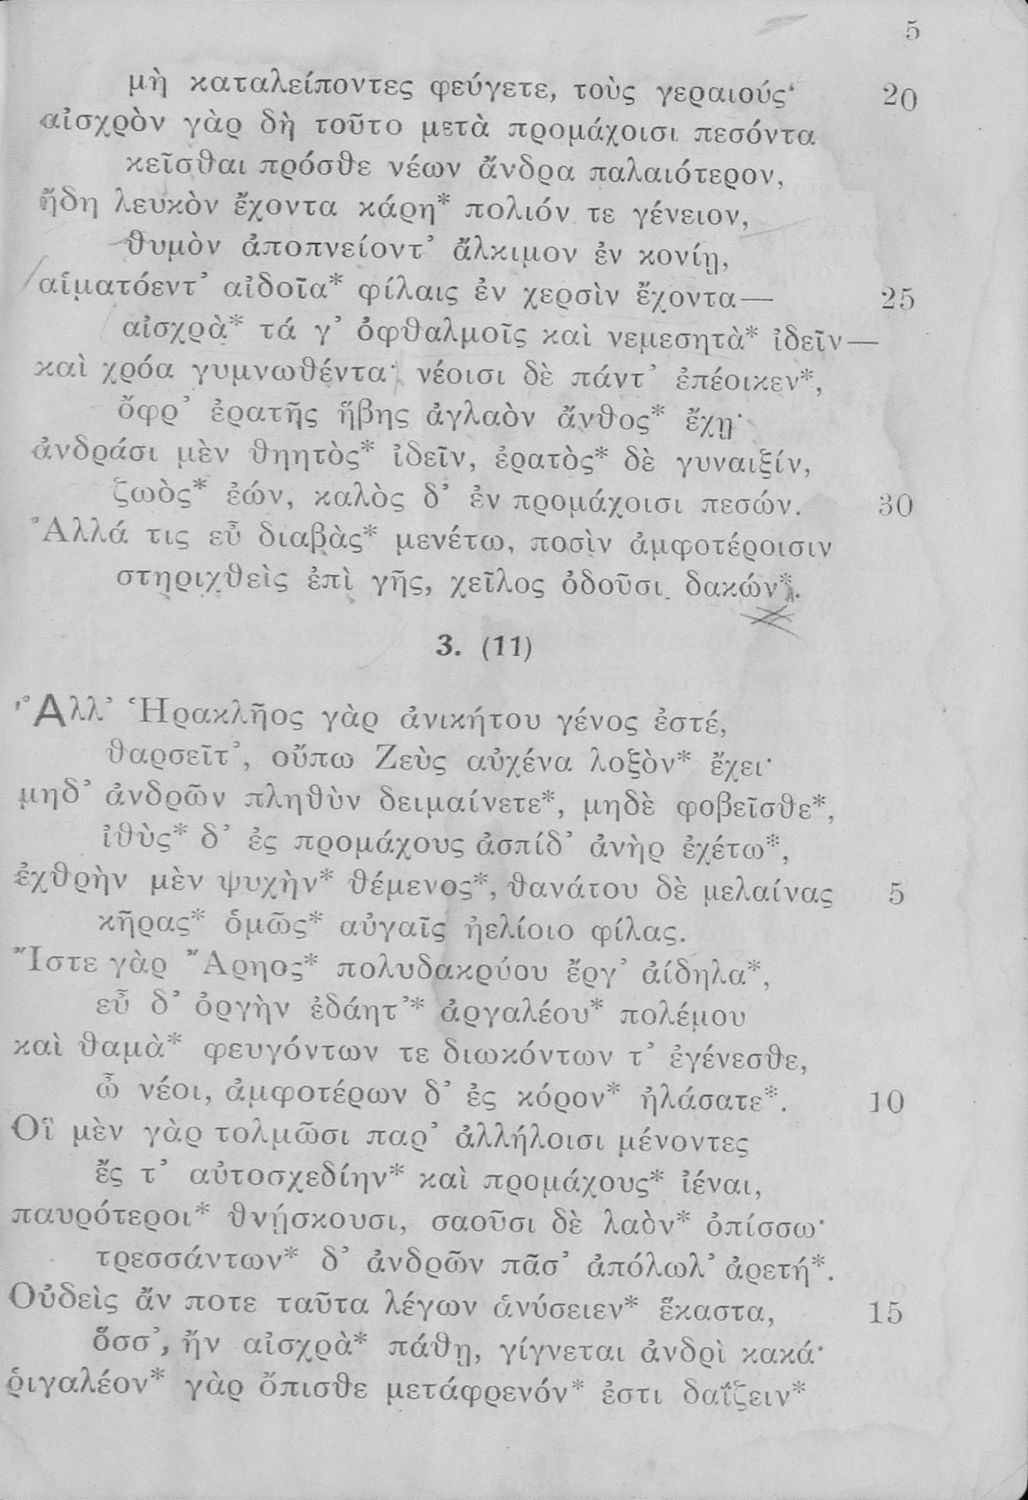 5
μὴ καταλείποντες φεύγετε, τοὺς γεραιούς· 20
αἰσχρὸν γὰρ δὴ τοῦτο μετὰ προμάχοισι πεσόντα
κεῖσθαι πρόσθε νέων ἄνδρα παλαιότερον,
ἤδη λευκὸν ἔχοντα κάρη* πολιόν τε γένειον,
θυμὸν ἀποπνείοντ’ ἄλκιμον ἐν κονίῃ,
αἱματόεντ’ αἰδοῖα* φίλαις ἐν χερσὶν ἔχοντα— 25
αἰσχρὰ* τά γ’ ὀφθαλμοῖς καὶ νεμεσητὰ* ἰδεῖν—
καὶ χρόα γυμνωθέντα· νέοισι δὲ πάντ’ ἐπέοικεν*,
ὄφρ’ ἐρατῆς ἥβης ἀγλαὸν ἄνθος* ἔχῃ·
ἀνδράσι μὲν θηητὸς* ἰδεῖν, ἐρατὸς* δὲ γυναιξίν,
ζωὸς* ἐών, καλὸς δ’ ἐν προμάχοισι πεσών. 30
Ἀλλά τις εὖ διαβὰς* μενέτω, ποσὶν ἀμφοτέροισιν
στηριχθεὶς ἐπὶ γῆς, χεῖλος ὀδοῦσι δακών*.
3. (11)
Ἀλλ’ Ἡρακλῆος γὰρ ἀνικήτου γένος ἐστέ,
θαρσεῖτ’, οὔπω Ζεὺς αὐχένα λοξὸν* ἔχει·
μηδ’ ἀνδρῶν πληθὺν δειμαίνετε*, μηδὲ φοβεῖσθε*,
ἰθὺς* δ’ ἐς προμάχους ἀσπίδ’ ἀνὴρ ἐχέτω*,
ἐχθρὴν μὲν ψυχὴν* θέμενος*, θανάτου δὲ μελαίνας 5
κῆρας* ὁμῶς* αὐγαῖς ἠελίοιο φίλας.
Ἴστε γὰρ Ἄρηος* πολυδακρύου ἔργ’ ἀίδηλα*,
εὖ δ’ ὀργὴν ἐδάητ’* ἀργαλέου* πολέμου
καὶ θαμὰ* φευγόντων τε διωκόντων τ’ ἐγένεσθε,
ὦ νέοι, ἀμφοτέρων δ’ ἐς κόρον* ἠλάσατε*. 10
Οἳ μὲν γὰρ τολμῶσι παρ’ ἀλλήλοισι μένοντες
ἔς τ’ αὐτοσχεδίην* καὶ προμάχους* ἰέναι,
παυρότεροι* θνῄσκουσι, σαοῦσι δὲ λαὸν* ὀπίσσω·
τρεσσάντων* δ’ ἀνδρῶν πᾶσ’ ἀπόλωλ’ ἀρετή*.
Οὐδεὶς ἄν ποτε ταῦτα λέγων ἀνύσειεν* ἕκαστα, 15
ὅσσ’, ἢν αἰσχρὰ* πάθῃ, γίγνεται ἀνδρὶ κακά·
ῥιγαλέον* γὰρ ὄπισθε μετάφρενόν* ἐστι δαΐζειν*